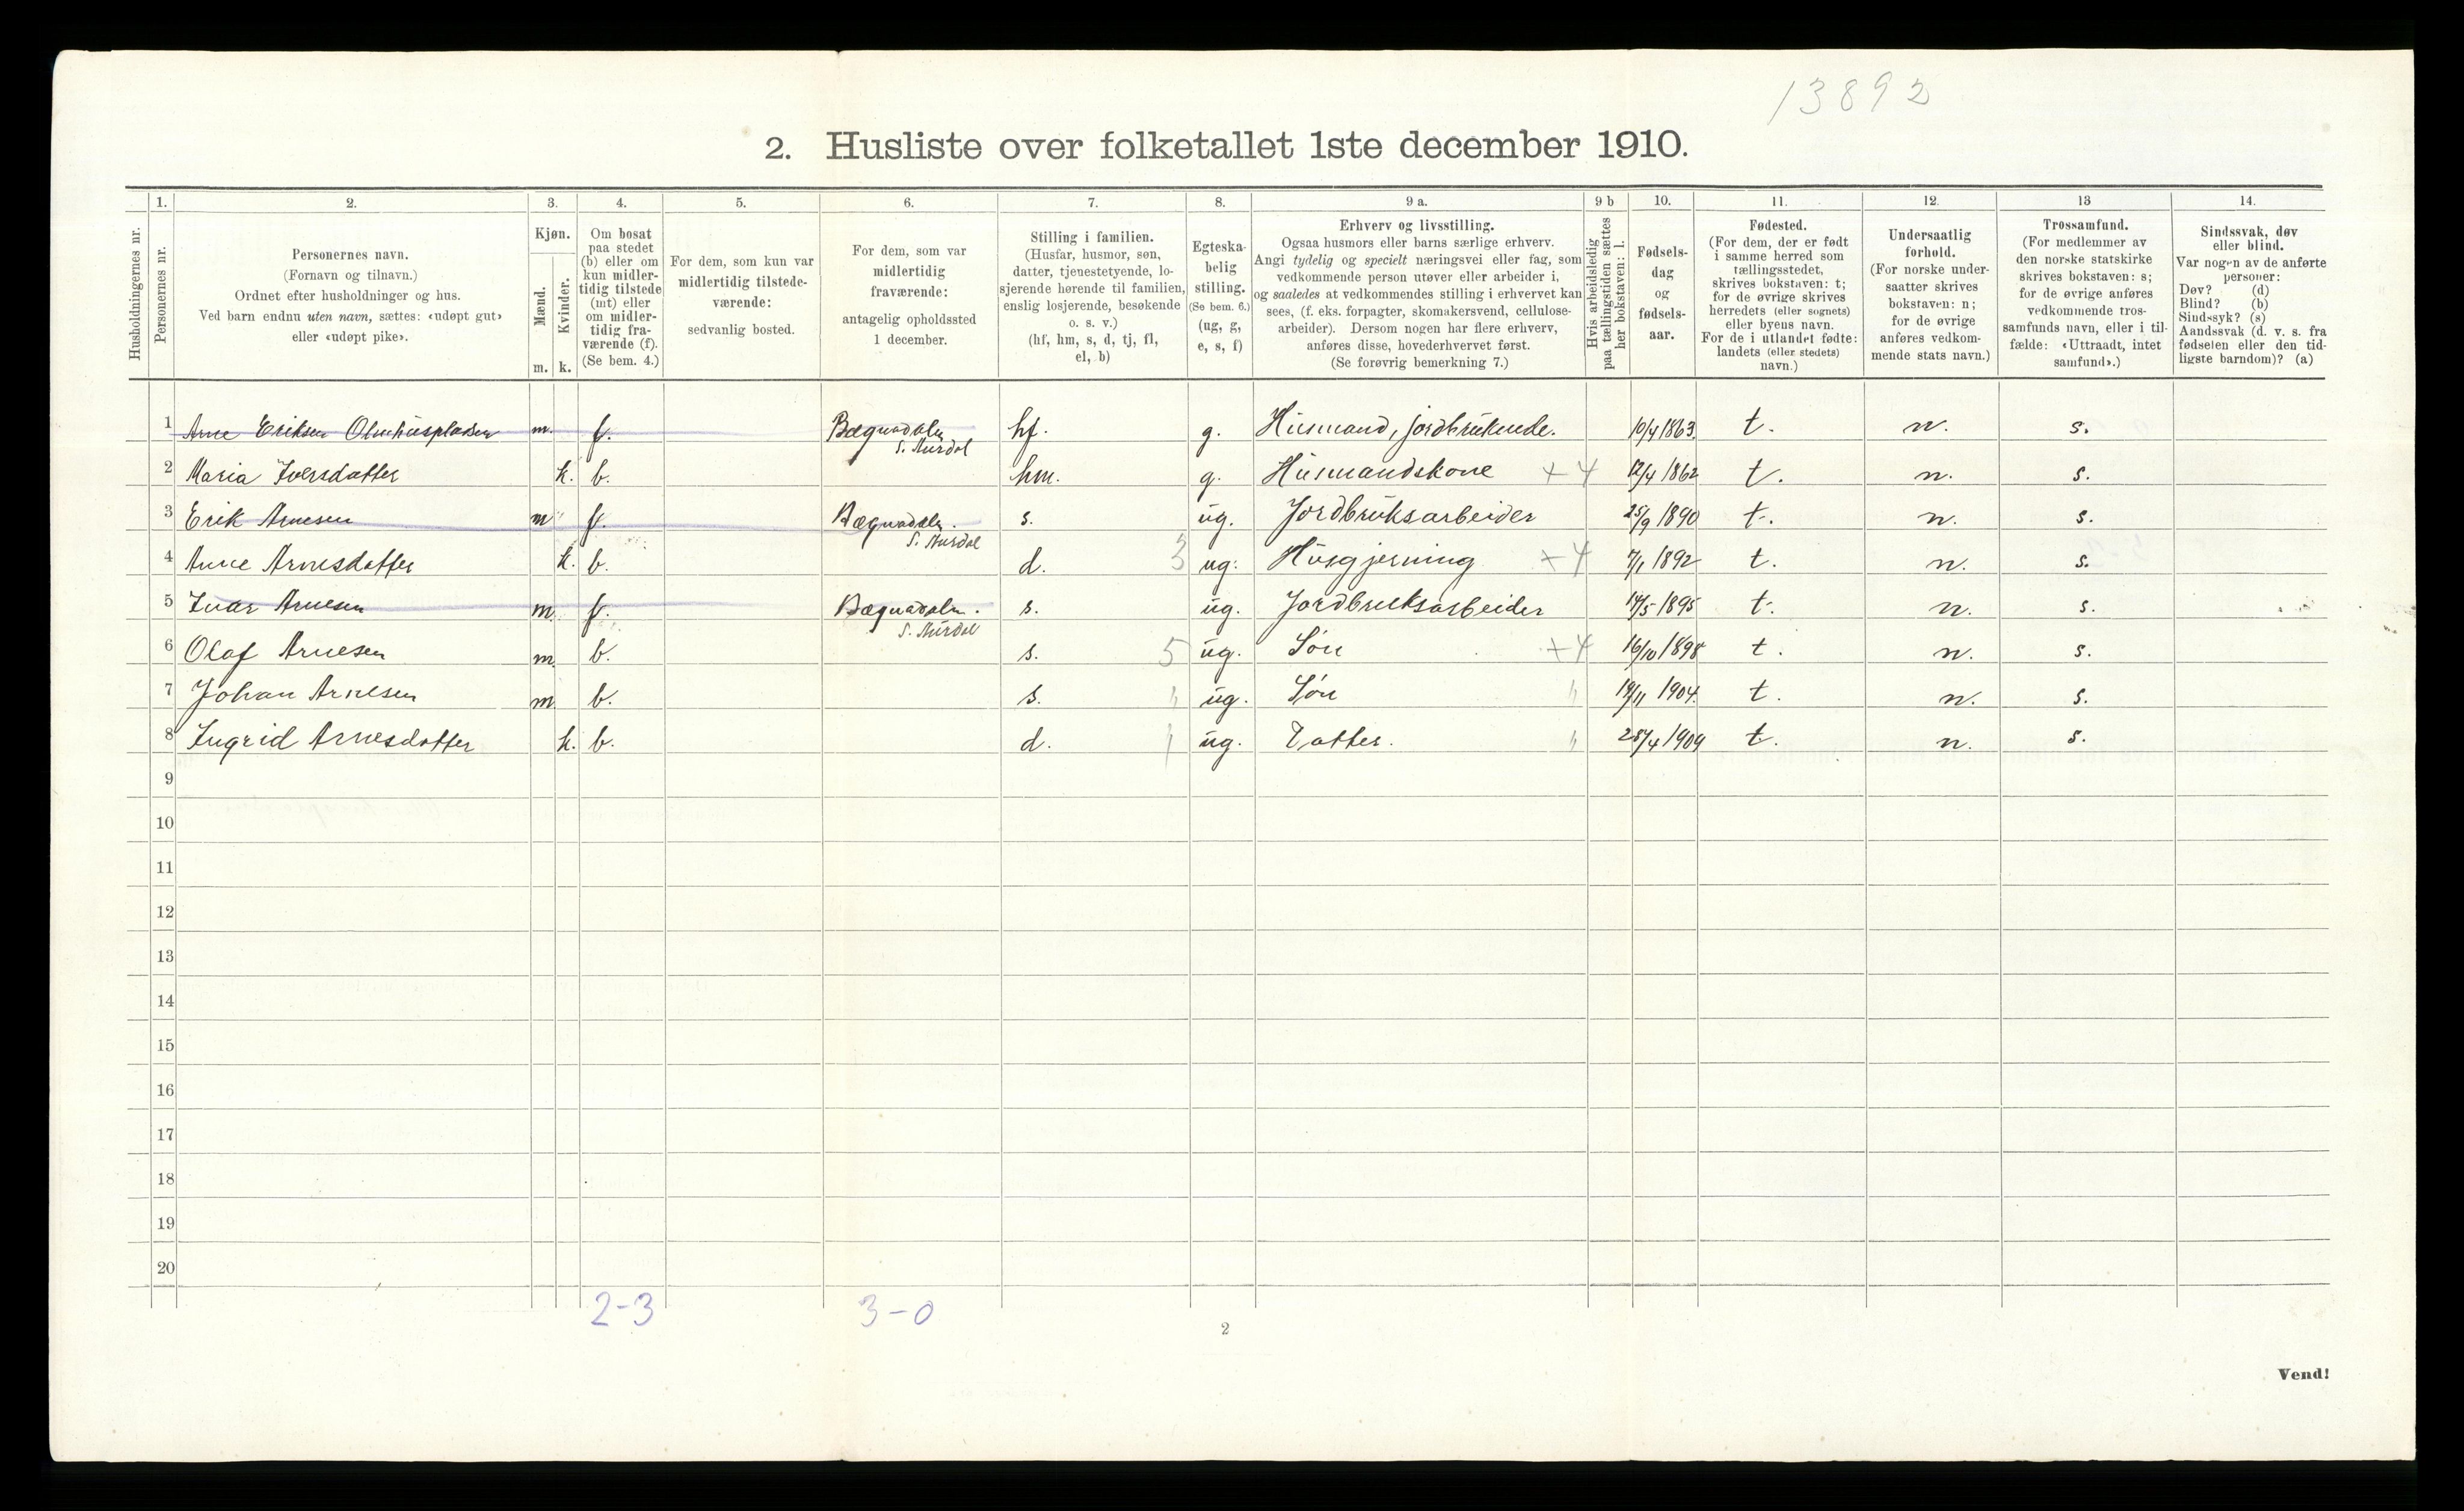 13892
2. Husliste over folketallet 1ste december 1910.
Husholdningernes nr.
1.
Personernes nr.
2.
Personernes navn.
(Fornavn og tilnavn.)
Ordnet efter husholdninger og hus.
Ved barn endnu uten navn, sættes: «udøpt gut»
eller «udøpt pike».
3.
Kjøn.
Mænd.
Kvinder.
m. k.
4.
Om bosat
paa stedet
(b) eller om
kun midler-
tidig tilstede
(mt) eller
om midler-
tidig fra-
værende (f).
(Se bem. 4.)
5.
For dem, som kun var
midlertidig tilstede-
værende:
sedvanlig bosted.
6.
For dem, som var
midlertidig
fraværende:
antagelig opholdssted
1 december.
7.
Stilling i familien.
(Husfar, husmor, søn,
datter, tjenestetyende, lo-
sjerende hørende til familien,
enslig losjerende, besøkende
o. s. v.)
(hf, hm, s, d, tj, fl,
el, b)
8.
Egteska-
belig
stilling.
(Se bem. 6.)
(ug, g,
e, s, f)
9 a.
Erhverv og livsstilling.
Ogsaa husmors eller barns særlige erhverv.
Angi tydelig og specielt næringsvei eller fag, som
vedkommende person utøver eller arbeider i,
og saaledes at vedkommendes stilling i erhvervet kan
sees, (f. eks. forpagter, skomakersvend, cellulose-
arbeider). Dersom nogen har flere erhverv,
anføres disse, hovederhvervet først.
(Se forøvrig bemerkning 7.)
9 b
Hvis arbeidsledig
paa tællingstiden sættes
her bokstaven: l.
10.
Fødsels-
dag
og
fødsels-
aar.
11.
Fødested.
(For dem, der er født
i samme herred som
tællingsstedet,
skrives bokstaven: t;
for de øvrige skrives
herredets (eller sognets)
eller byens navn.
For de i utlandet fødte:
landets (eller stedets)
navn.)
12.
Undersaatlig
forhold.
(For norske under-
saatter skrives
bokstaven: n;
for de øvrige
anføres vedkom-
mende stats navn.)
13
Trossamfund.
(For medlemmer av
den norske statskirke
skrives bokstaven: s;
for de øvrige anføres
vedkommende tros-
samfunds navn, eller i til-
fælde: «Uttraadt, intet
samfund».)
14.
Sindssvak, døv
eller blind.
Var nogen av de anførte
personer:
Døv? (d)
Blind? (b)
Sindssyk? (s)
Aandssvak (d. v. s. fra
fødselen eller den tid-
ligste barndom)? (a)
1 Arne Eriksen Olmhuspladsen m. f. Bægnadalen S. Aurdal hf. g. Husmand, jordbrukende. 10/4 1863. t. n. s.
2 Maria Iversdatter k. b. hm. g. Husmandskone +4 12/4 1862 t. n. s.
3 Erik Arnesen m f. Bægnadalen. S. Aurdal s. ug. Jordbruksarbeider 25/9 1890 t. n. s.
4 Anne Arnesdatter k. b. d. 3 ug. Husgjerning +4 7/1 1892 t. n. s.
5 Ivar Arnesen m. f. Bægnadalen. S. Aurdal s. ug. Jordbruksarbeider 14/5 1895 t. n. s.
6 Olaf Arnesen m. b. s. 5 ug. Søn +4 16/10 1898 t. n. s.
7 Johan Arnesen m b. s. ug. Søn 19/11 1904. t. n. s.
8 Ingrid Arnesdatter k. b. d. ug. Datter. 28/4 1909 t. n. s.
9
10
11
12
13
14
15
16
17
18
19
20
2-3 3-0
2
Vend!